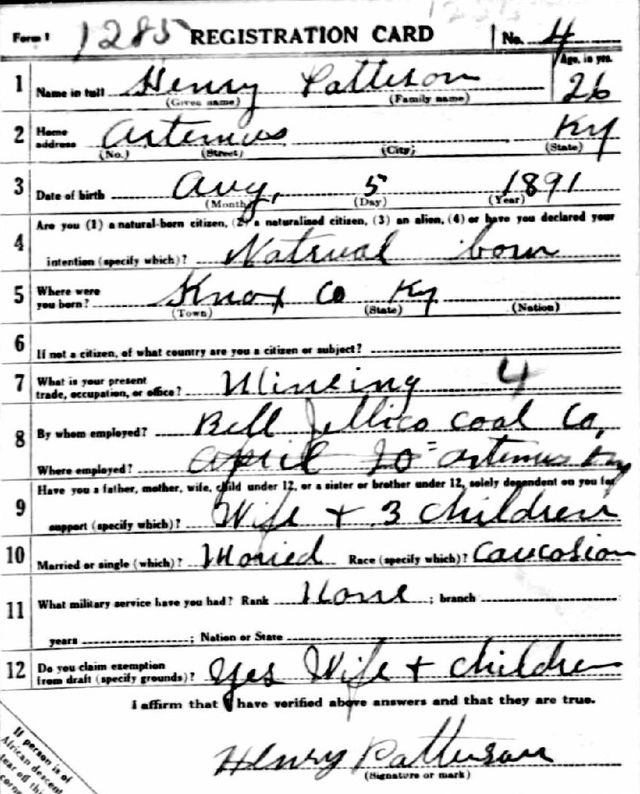 Form 1 1285 REGISTRATION CARD No. 4
1 Name in full Henry Patterson Age, in yrs. 26
(Given name) (Family name)
2 Home address Artemus Ky
(No.) (Street) (City) (State)
3 Date of birth Aug, 5 1891
(Month) (Day) (Year)
4 Are you (1) a natural-born citizen, (2) a naturalized citizen, (3) an alien, (4) or have you declared your
intention (specify which)? Natrual born
5 Where were you born? Knox Co Ky
(Town) (State) (Nation)
6 If not a citizen, of what country are you a citizen or subject?
7 What is your present trade, occupation, or office? Mineing 4
8 By whom employed? Bell Jellico Coal Co,
Where employed? April 20 = Artemus Ky
9 Have you a father, mother, wife, child under 12, or a sister or brother under 12, solely dependent on you for
support (specify which)? Wife + 3 children
10 Married or single (which)? Maried Race (specify which)? Caucasian
11 What military service have you had? Rank None ; branch
years ; Nation or State
12 Do you claim exemption from draft (specify grounds)? Yes Wife + children
I affirm that I have verified above answers and that they are true.
Henry Patterson
(Signature or mark)
If person is of
African descent
tear off this